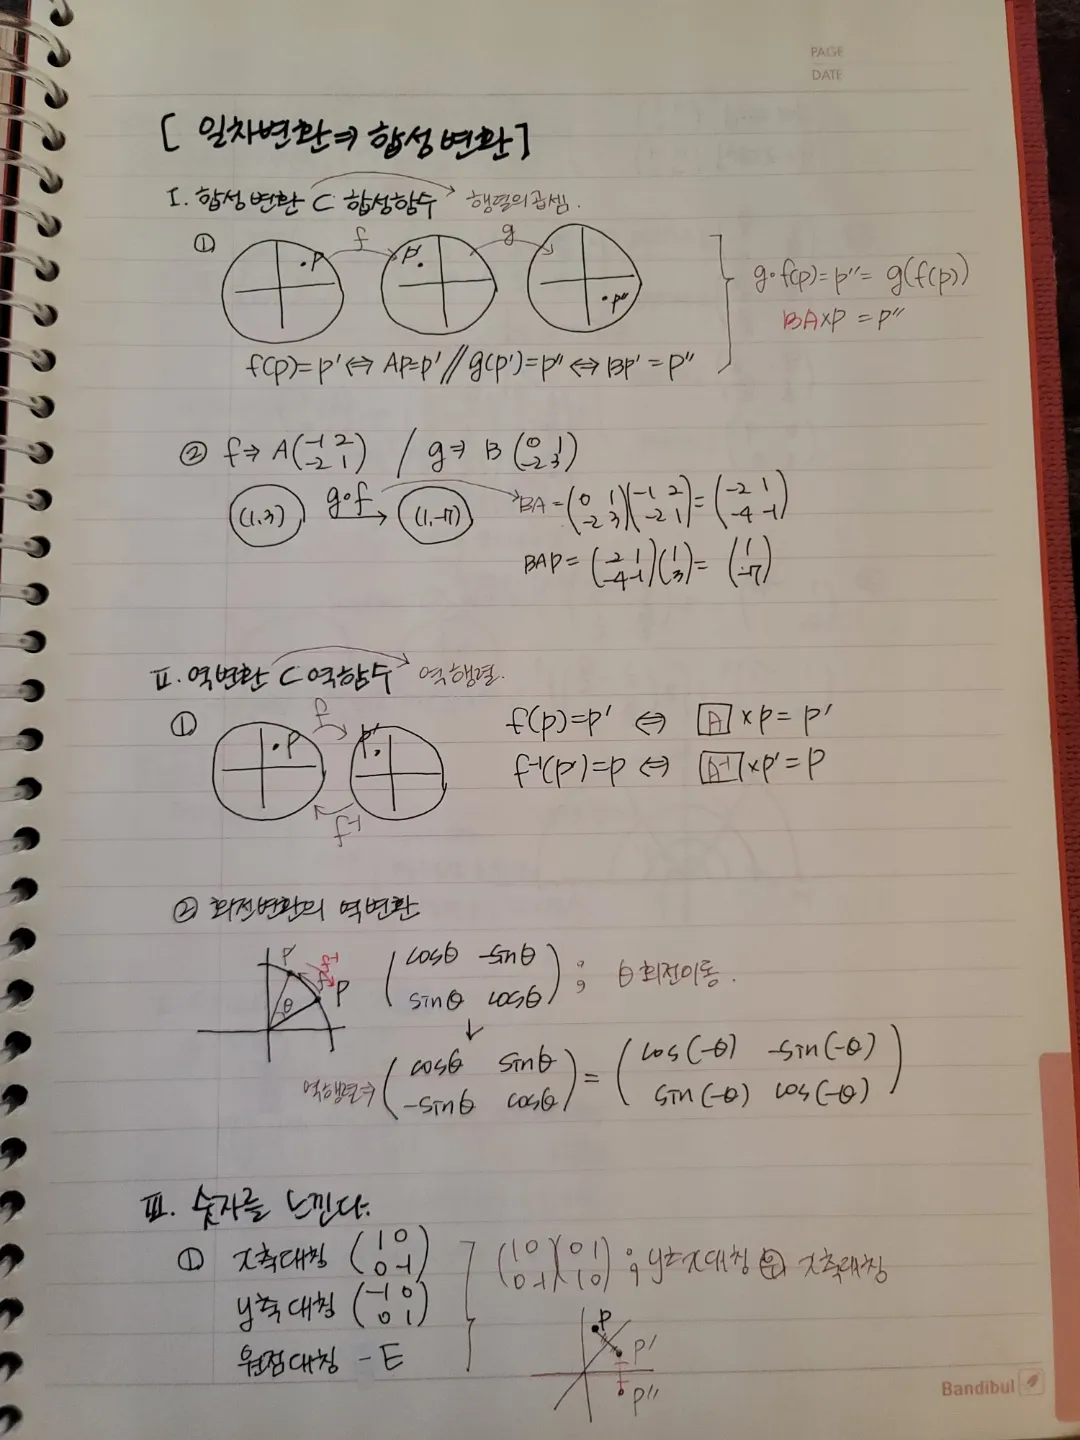 PAGE
DATE
[ 일차변환 ⇒ 합성변환 ]
I. 합성변환 ⊂ 합성함수 → 행렬의 곱셈.
① p f p' g p''
g∘f(p) = p'' = g(f(p))
BA×p = p''
f(p)=p' ⇔ AP=p' // g(p')=p'' ⇔ Bp' = p''
② f ⇒ A(-1 2 / -2 1) / g ⇒ B(0 1 / -2 3)
(1,3) g∘f → (1,-7)
BA = (0 1 / -2 3)(-1 2 / -2 1) = (-2 1 / -4 -1)
BAP = (-2 1 / -4 -1)(1 / 3) = (1 / -7)
II. 역변환 ⊂ 역함수 → 역행렬.
① p f p' f⁻¹
f(p)=p' ⇔ A × p = p'
f⁻¹(p')=p ⇔ A⁻¹ × p' = p
② 회전변환의 역변환
p' θ p
(cosθ -sinθ / sinθ cosθ) ; θ 회전이동.
↓
역행렬 ⇒ (cosθ sinθ / -sinθ cosθ) = (cos(-θ) -sin(-θ) / sin(-θ) cos(-θ))
III. 숫자를 느낀다.
① x축대칭 (1 0 / 0 -1)
y축 대칭 (-1 0 / 0 1)
원점대칭 -E
(1 0 / 0 -1)(0 1 / 1 0) ; y=x대칭 후 x축대칭
p
p'
p''
Bandibul